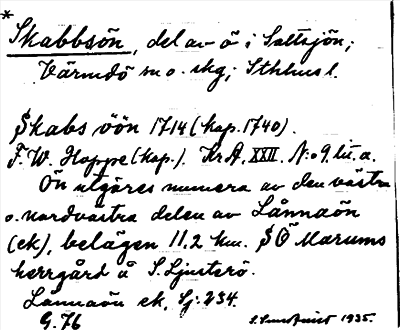 *
Skabbsön, del av ö i Saltsjön;
Värmdö m o. skg; Sthlms l.
Skabs öön 1714 (kop. 1740).
F. W. Hoppe (kop.). Kr A. XXII. N:o 9. lit. a.
Ön utgöres numera av den västra
o. nordvästra delen av Lännaön
(ek), belägen 11,2 km. SÖ Marums
herrgård å S. Ljusterö.
Lännaön ek. Sj: 234.
G. 76
1935.